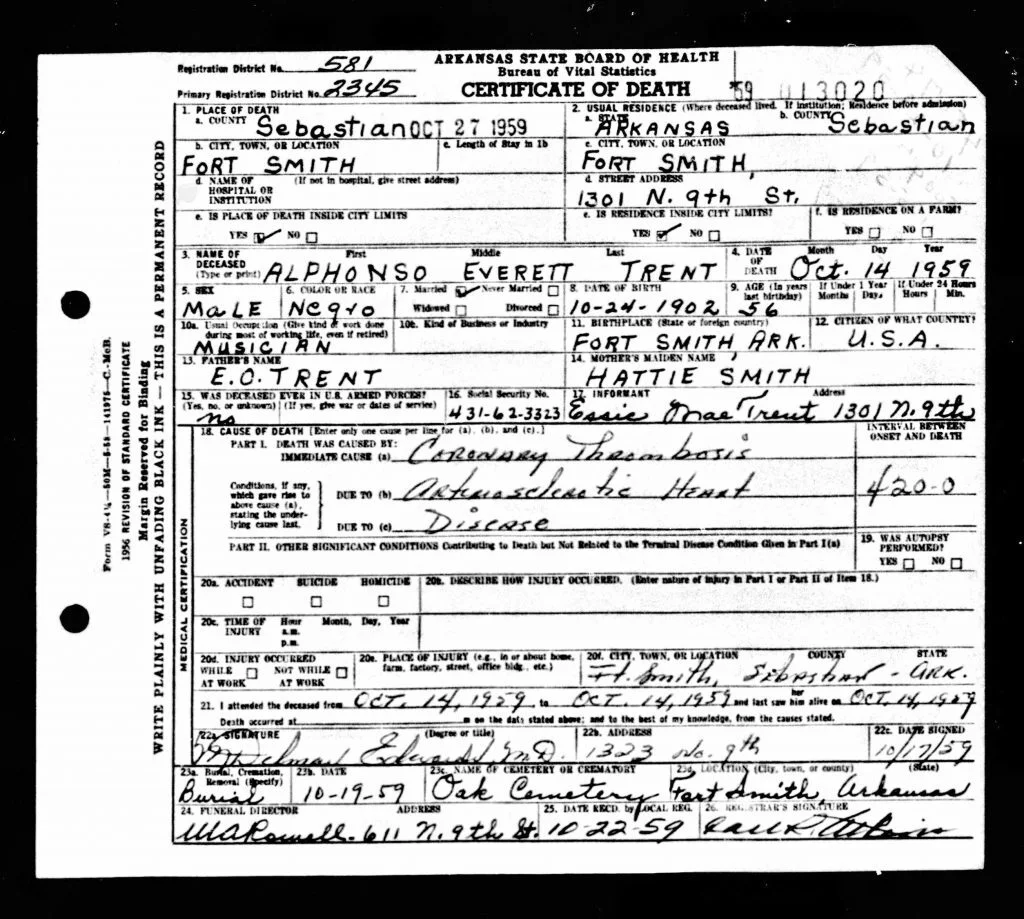 Registration District No. 581
ARKANSAS STATE BOARD OF HEALTH
Bureau of Vital Statistics
Primary Registration District No. 2345
CERTIFICATE OF DEATH
59 013020
1. PLACE OF DEATH
a. COUNTY Sebastian OCT 27 1959
2. USUAL RESIDENCE (Where deceased lived. If institution; Residence before admission)
a. STATE ARKANSAS b. COUNTY Sebastian
b. CITY, TOWN, OR LOCATION
FORT SMITH
c. Length of Stay in 1b
c. CITY, TOWN, OR LOCATION
FORT SMITH,
d. NAME OF HOSPITAL OR INSTITUTION
(If not in hospital, give street address)
d. STREET ADDRESS
1301 N. 9th St.
e. IS PLACE OF DEATH INSIDE CITY LIMITS
YES NO
e. IS RESIDENCE INSIDE CITY LIMITS?
YES NO
f. IS RESIDENCE ON A FARM?
YES NO
3. NAME OF DECEASED
(Type or print)
First Middle Last
ALPHONSO EVERETT TRENT
4. DATE OF DEATH
Month Day Year
Oct. 14 1959
5. SEX
MALE
6. COLOR OR RACE
Negro
7. Married Never Married
Widowed Divorced
8. DATE OF BIRTH
10-24-1902
9. AGE (In years last birthday)
56
If Under 1 Year
Months Days
If Under 24 Hours
Hours Min.
10a. Usual Occupation (Give kind of work done during most of working life, even if retired)
MUSICIAN
10b. Kind of Business or Industry
11. BIRTHPLACE (State or foreign country)
FORT SMITH ARK.
12. CITIZEN OF WHAT COUNTRY?
U.S.A.
13. FATHER'S NAME
E.O. TRENT
14. MOTHER'S MAIDEN NAME
HATTIE SMITH
15. WAS DECEASED EVER IN U.S. ARMED FORCES?
(Yes, no, or unknown) (If yes, give war or dates of service)
no
16. Social Security No.
431-62-3323
17. INFORMANT Address
Essie Mae Trent 1301 N. 9th
18. CAUSE OF DEATH [Enter only one cause per line for (a), (b), and (c).]
INTERVAL BETWEEN ONSET AND DEATH
PART I. DEATH WAS CAUSED BY:
IMMEDIATE CAUSE (a) Coronary Thrombosis
Conditions, if any, which gave rise to above cause (a), stating the underlying cause last.
DUE TO (b) Arteriosclerotic Heart
420-0
DUE TO (c) Disease
PART II. OTHER SIGNIFICANT CONDITIONS Contributing to Death but Not Related to the Terminal Disease Condition Given in Part I(a)
19. WAS AUTOPSY PERFORMED?
YES NO
20a. ACCIDENT SUICIDE HOMICIDE
20b. DESCRIBE HOW INJURY OCCURRED. (Enter nature of injury in Part I or Part II of Item 18.)
20c. TIME OF INJURY
Hour Month, Day, Year
a.m.
p.m.
20d. INJURY OCCURRED
WHILE AT WORK NOT WHILE AT WORK
20e. PLACE OF INJURY (e.g., in or about home, farm, factory, street, office bldg., etc.)
20f. CITY, TOWN, OR LOCATION COUNTY STATE
Ft. Smith, Sebastian - ARK.
21. I attended the deceased from OCT. 14, 1959, to OCT. 14, 1959 and last saw her him alive on OCT. 14, 1959
Death occurred at m on the date stated above; and to the best of my knowledge, from the causes stated.
22a. SIGNATURE (Degree or title)
Delmas Edwards M.D.
22b. ADDRESS
1323 No. 9th
22c. DATE SIGNED
10/17/59
23a. Burial, Cremation, Removal (Specify)
Burial
23b. DATE
10-19-59
23c. NAME OF CEMETERY OR CREMATORY
Oak Cemetery
23d. LOCATION (City, town, or county) (State)
Fort Smith, Arkansas
24. FUNERAL DIRECTOR ADDRESS
WARowell-611 N. 9th St.
25. DATE RECD. by LOCAL REG.
10-22-59
26. REGISTRAR'S SIGNATURE
Form VS-4
1956 REVISION OF STANDARD CERTIFICATE
Margin Reserved for Binding
WRITE PLAINLY WITH UNFADING BLACK INK — THIS IS A PERMANENT RECORD
MEDICAL CERTIFICATION